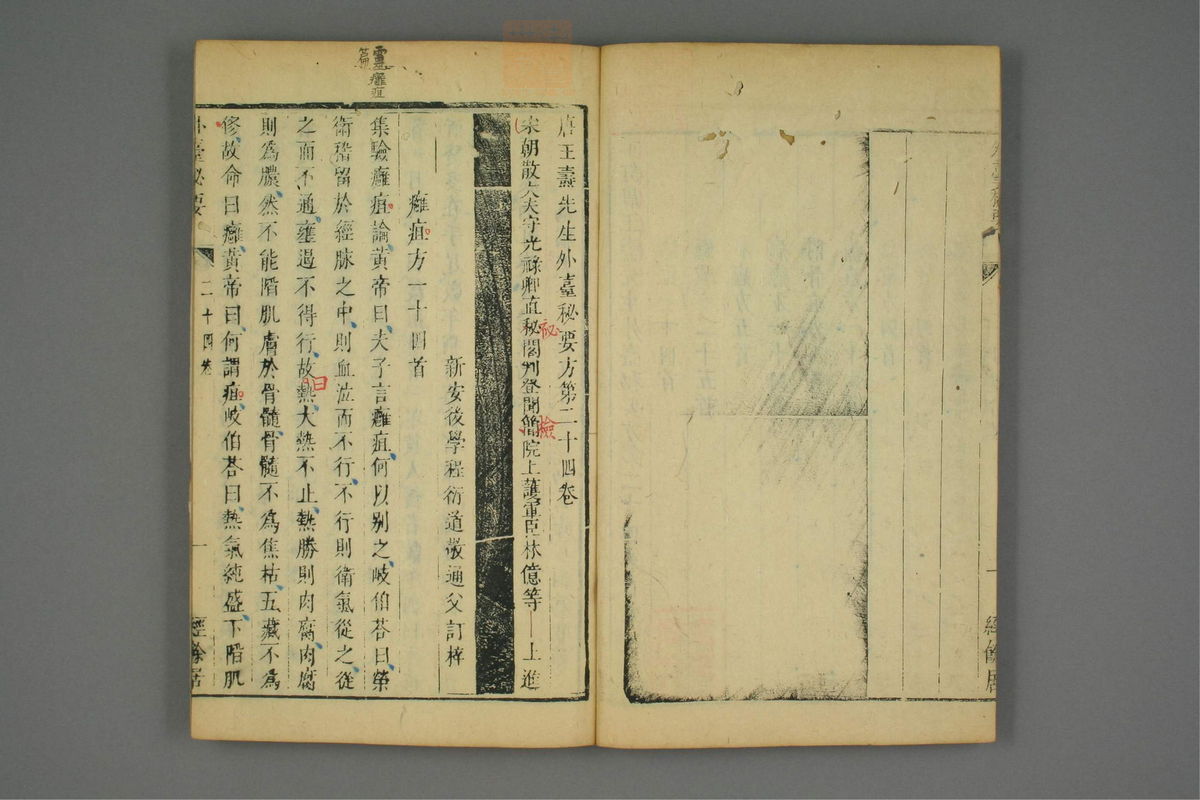 外臺秘要
一
經餘居
靈癰疽
篇
唐王燾先生外臺秘要方第二十四卷
宋朝散大夫守光祿卿直秘閣判登聞簡院上護軍臣林億等 上進
秘
檢
新安後學程衍道敬通父訂梓
癰疽方一十四首
集驗癰疽論黃帝曰夫子言癰疽何以別之岐伯荅曰榮
衛稽留於經脉之中則血泣而不行不行則衛氣從之從
之而不通壅遏不得行故熱大熱不止熱勝則肉腐肉腐
曰
則為膿然不能䧟肌膚於骨髓骨髓不為焦枯五藏不為
修故命曰癰黃帝曰何謂疽岐伯荅曰熱氣純盛下䧟肌
外臺秘要
二十四卷
一
經餘居